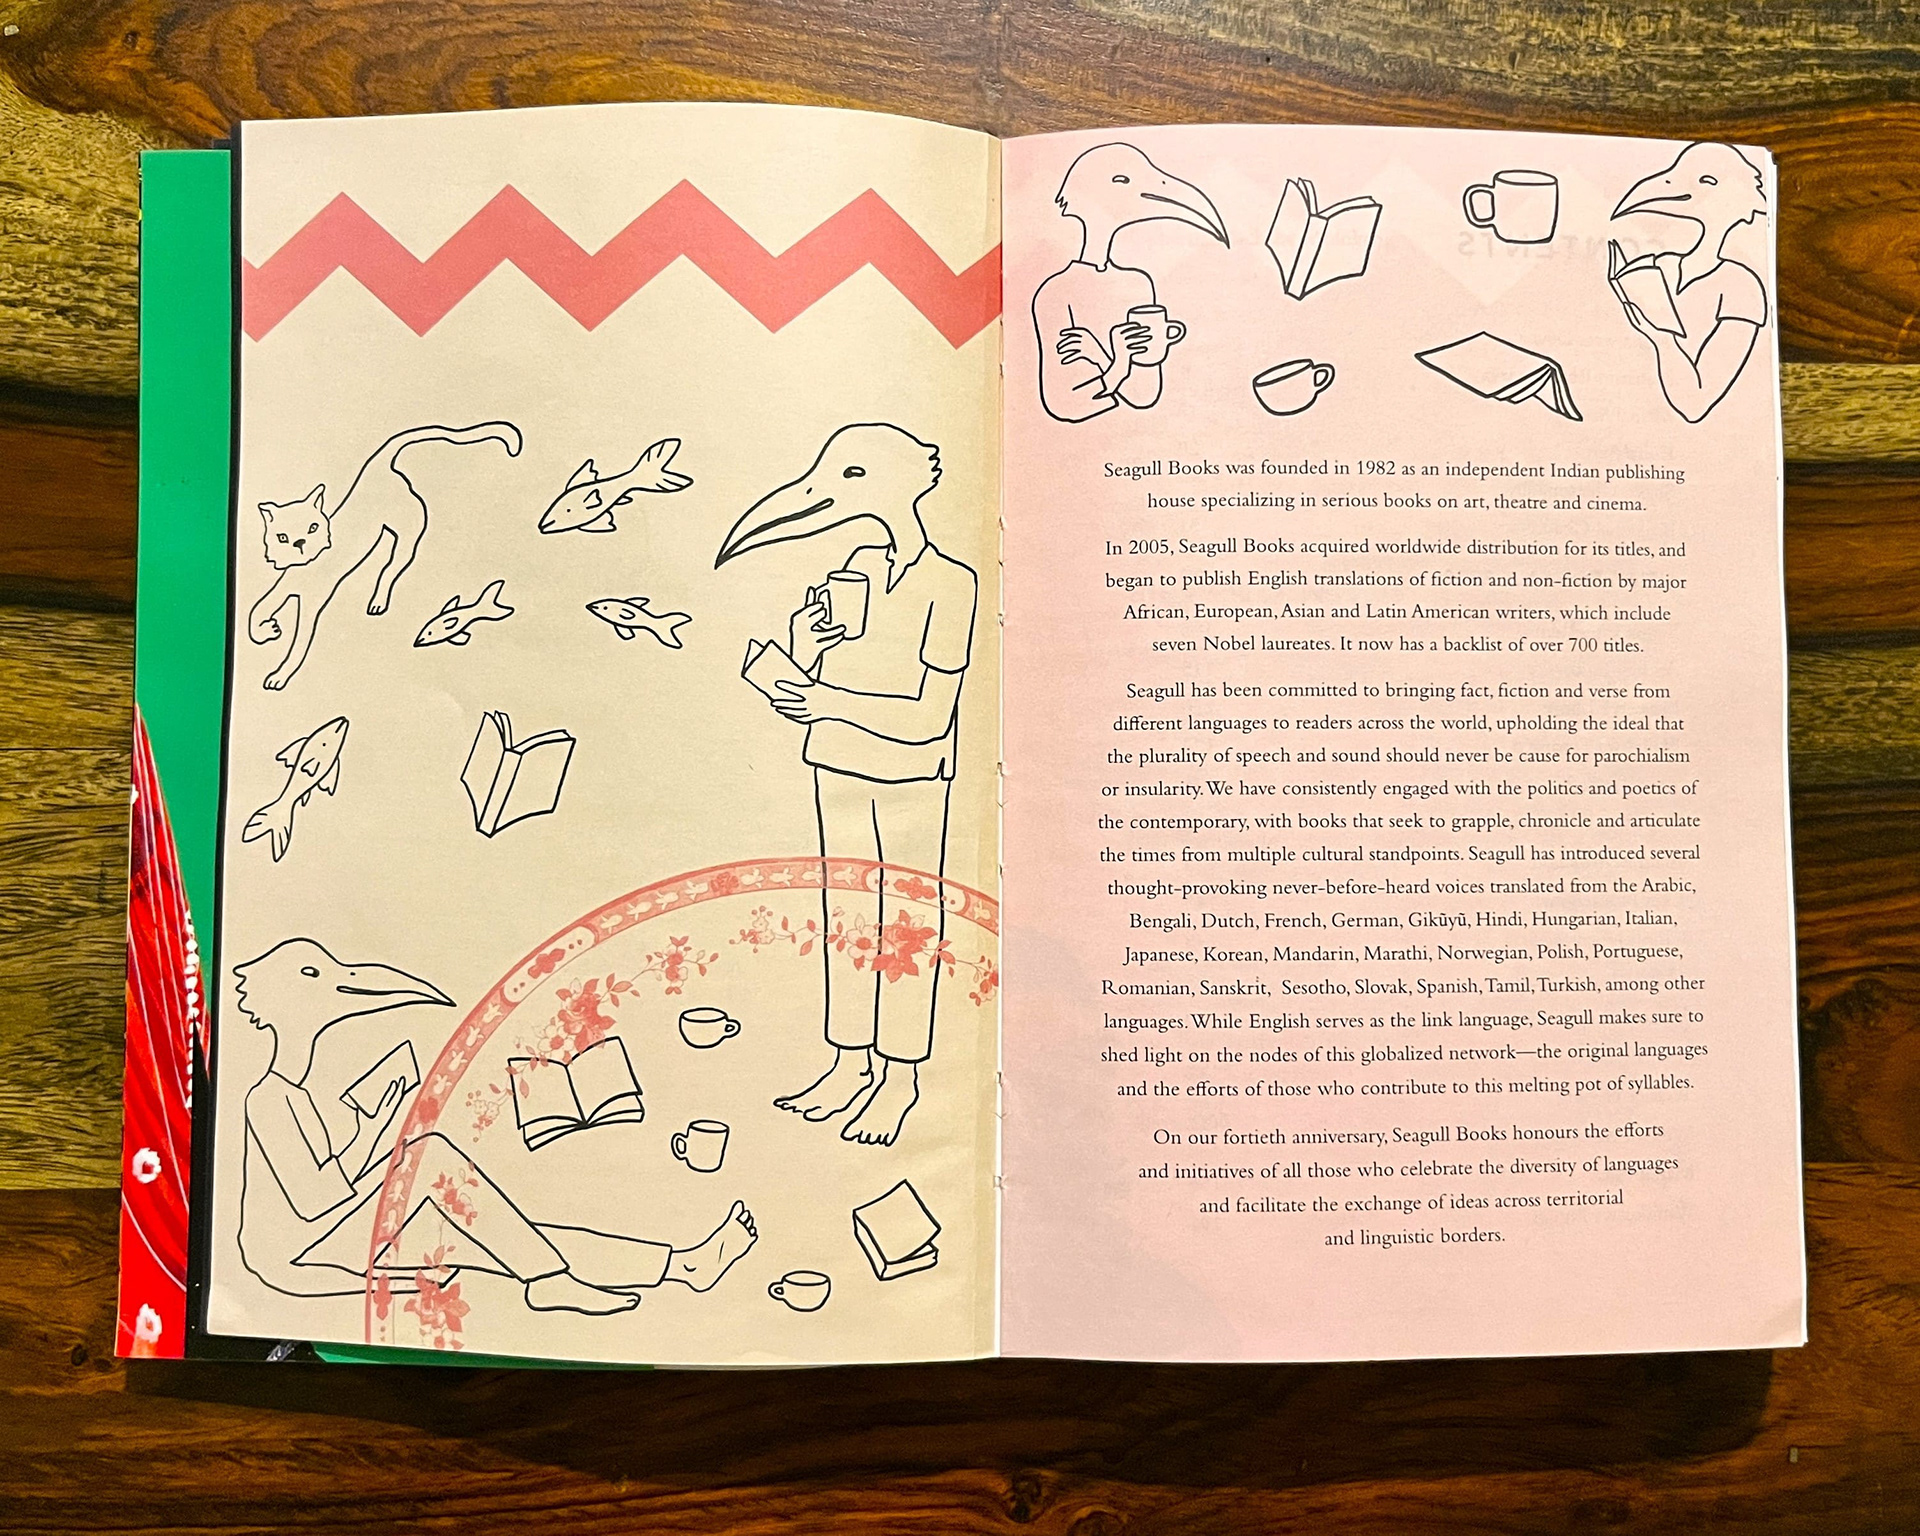 CONTENTS
Seagull Books was founded in 1982 as an independent Indian publishing
house specializing in serious books on art, theatre and cinema.
In 2005, Seagull Books acquired worldwide distribution for its titles, and
began to publish English translations of fiction and non-fiction by major
African, European, Asian and Latin American writers, which include
seven Nobel laureates. It now has a backlist of over 700 titles.
Seagull has been committed to bringing fact, fiction and verse from
different languages to readers across the world, upholding the ideal that
the plurality of speech and sound should never be cause for parochialism
or insularity. We have consistently engaged with the politics and poetics of
the contemporary, with books that seek to grapple, chronicle and articulate
the times from multiple cultural standpoints. Seagull has introduced several
thought-provoking never-before-heard voices translated from the Arabic,
Bengali, Dutch, French, German, Gikũyũ, Hindi, Hungarian, Italian,
Japanese, Korean, Mandarin, Marathi, Norwegian, Polish, Portuguese,
Romanian, Sanskrit, Sesotho, Slovak, Spanish, Tamil, Turkish, among other
languages. While English serves as the link language, Seagull makes sure to
shed light on the nodes of this globalized network—the original languages
and the efforts of those who contribute to this melting pot of syllables.
On our fortieth anniversary, Seagull Books honours the efforts
and initiatives of all those who celebrate the diversity of languages
and facilitate the exchange of ideas across territorial
and linguistic borders.